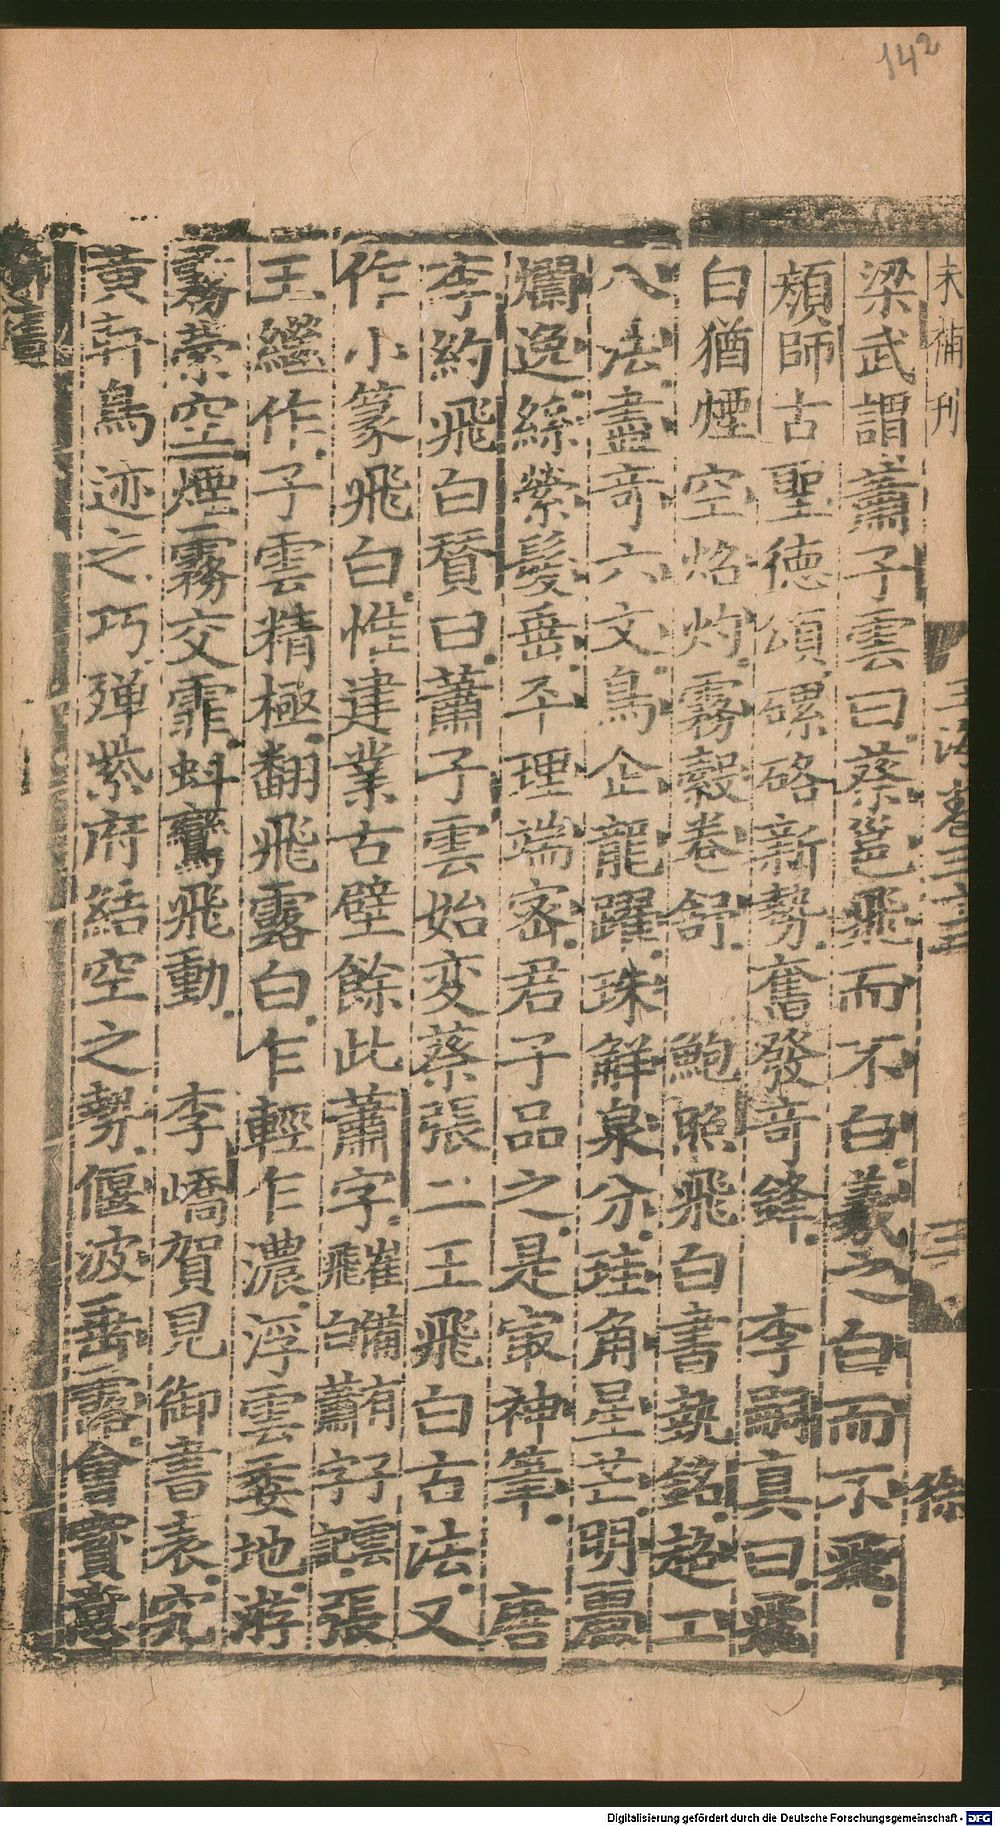 142
未補刊
玉海卷
徐
梁武謂蕭子雲曰蔡邕飛而不白羲之白而不飛
顏師古聖德頌磥硌新勢奮發竒鋒　李嗣真曰飛
白猶煙空焰灼霧縠卷舒　鮑照飛白書埶銘超工
八法盡竒六文鳥企龍躍珠解泉分珪角星芒明麗
爛逸絲縈髮垂平理端密君子品之是㝡神筆　唐
李約飛白賛曰蕭子雲始変蔡張二王飛白古法又
作小篆飛白惟建業古壁餘此蕭字張
王繼作子雲精極翻飛露白乍輕乍濃浮雲委地游
霧縈空煙霧交霏蚪鸞飛動　李嶠賀見御書表究
黃竒鳥迹之巧殫紫府結空之勢偃波垂露會寳意
Digitalisierung gefördert durch die Deutsche Forschungsgemeinschaft - DFG